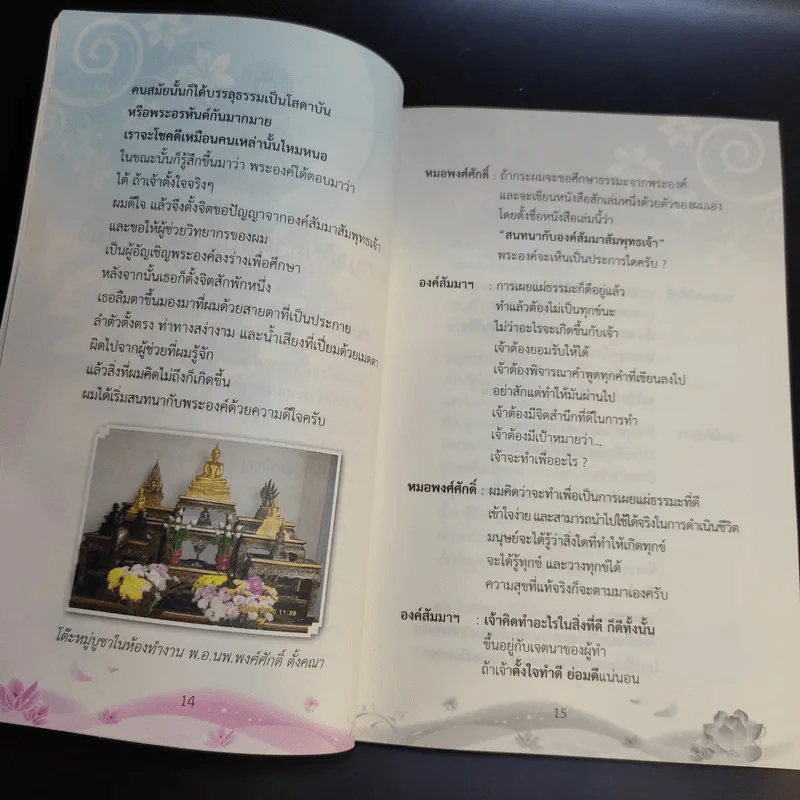 คนสมัยนั้นก็ได้บรรลุธรรมเป็นโสดาบัน
หรือพระอรหันต์กันมากมาย
เราจะโชคดีเหมือนคนเหล่านั้นไหมหนอ
ในขณะนั้นก็รู้สึกขึ้นมาว่า พระองค์ได้ตอบมาว่า
ได้ ถ้าเจ้าตั้งใจจริงๆ
ผมดีใจ แล้วจึงตั้งจิตขอปัญญาจากองค์สัมมาสัมพุทธเจ้า
และขอให้ผู้ช่วยวิทยากรของผม
เป็นผู้อัญเชิญพระองค์ลงร่างเพื่อศึกษา
หลังจากนั้นเธอก็ตั้งจิตสักพักหนึ่ง
เธอลืมตาขึ้นมองมาที่ผมด้วยสายตาที่เป็นประกาย
ลำตัวตั้งตรง ท่าทางสง่างาม และน้ำเสียงที่เปี่ยมด้วยเมตตา
ผิดไปจากผู้ช่วยที่ผมรู้จัก
แล้วสิ่งที่ผมคิดไม่ถึงก็เกิดขึ้น
ผมได้เริ่มสนทนากับพระองค์ด้วยความดีใจครับ
11:39
โต๊ะหมู่บูชาในห้องทำงาน พ.อ.นพ.พงศ์ศักดิ์ ตั้งคณา
14
หมอพงศ์ศักดิ์ : ถ้ากระผมจะขอศึกษาธรรมะจากพระองค์
และจะเขียนหนังสือสักเล่มหนึ่งด้วยตัวของผมเอง
โดยตั้งชื่อหนังสือเล่มนี้ว่า
"สนทนากับองค์สัมมาสัมพุทธเจ้า"
พระองค์จะเห็นเป็นประการใดครับ ?
องค์สัมมาฯ : การเผยแผ่ธรรมะก็ดีอยู่แล้ว
ทำแล้วต้องไม่เป็นทุกข์นะ
ไม่ว่าอะไรจะเกิดขึ้นกับเจ้า
เจ้าต้องยอมรับให้ได้
เจ้าต้องพิจารณาคำพูดทุกคำที่เขียนลงไป
อย่าสักแต่ทำให้มันผ่านไป
เจ้าต้องมีจิตสำนึกที่ดีในการทำ
เจ้าต้องมีเป้าหมายว่า...
เจ้าจะทำเพื่ออะไร ?
หมอพงศ์ศักดิ์ : ผมคิดว่าจะทำเพื่อเป็นการเผยแผ่ธรรมะที่ดี
เข้าใจง่าย และสามารถนำไปใช้ได้จริงในการดำเนินชีวิต
มนุษย์จะได้รู้ว่าสิ่งใดที่ทำให้เกิดทุกข์
จะได้รู้ทุกข์ และวางทุกข์ได้
ความสุขที่แท้จริงก็จะตามมาเองครับ
องค์สัมมาฯ : เจ้าคิดทำอะไรในสิ่งที่ดี ก็ดีทั้งนั้น
ขึ้นอยู่กับเจตนาของผู้ทำ
ถ้าเจ้าตั้งใจทำดี ย่อมดีแน่นอน
15